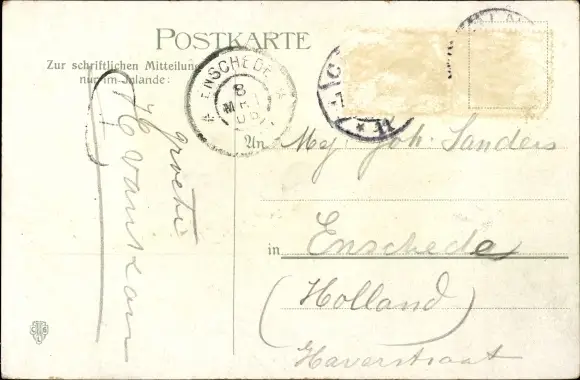 POSTKARTE
Zur schriftlichen Mitteilung
nur im Inlande:
ENSCHEDE
8
MRT
06
An Mej. Joh. Sanders
in Enschede
(Holland)
Haverstraat
Groete